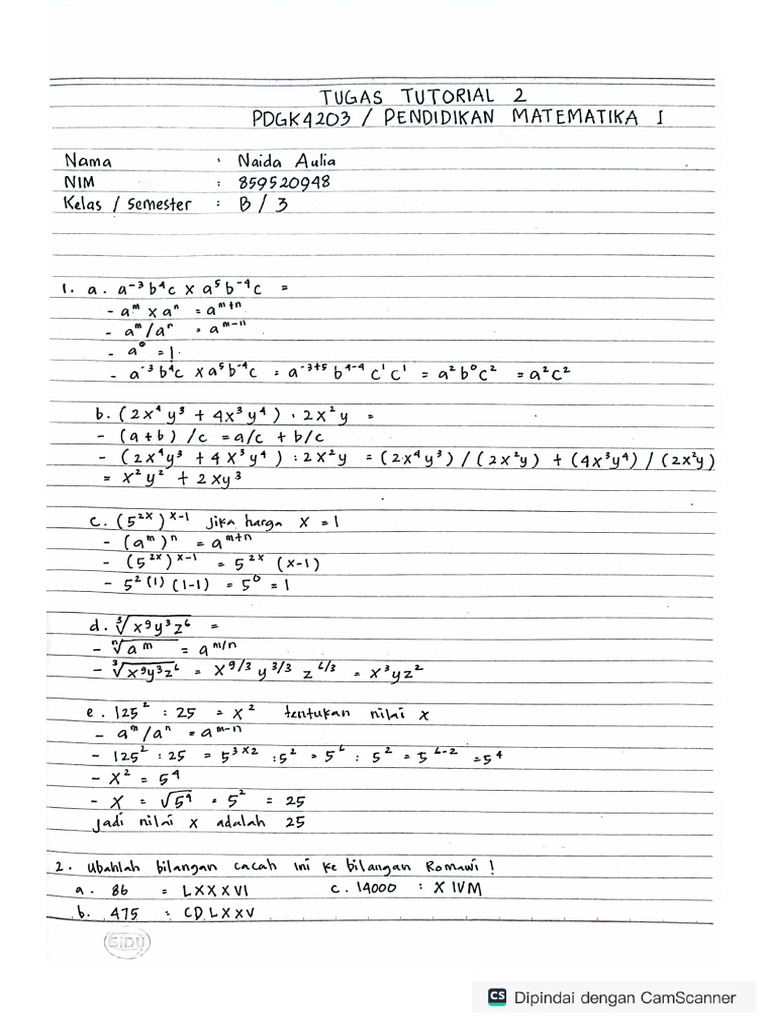 TUGAS TUTORIAL 2
PDGK4203 / PENDIDIKAN MATEMATIKA I
Nama : Naida Aulia
NIM : 859520948
Kelas / Semester : B / 3
1. a. a⁻³b⁴c x a⁵b⁻⁴c =
- aᵐ x aⁿ = aᵐ⁺ⁿ
- aᵐ/aⁿ = aᵐ⁻ⁿ
- a⁰ = 1.
- a⁻³b⁴c x a⁵b⁻⁴c = a⁻³⁺⁵ b⁴⁻⁴ c¹c¹ = a²b⁰c² = a²c²
b. (2x⁴y³ + 4x³y⁴) : 2x²y =
- (a+b) /c = a/c + b/c
- (2x⁴y³ + 4x³y⁴) : 2x²y = (2x⁴y³) / (2x²y) + (4x³y⁴) / (2x²y)
= x²y² + 2xy³
c. (5²ˣ)ˣ⁻¹ jika harga x = 1
- (aᵐ)ⁿ = aᵐ⁺ⁿ
- (5²ˣ)ˣ⁻¹ = 5²ˣ (x-1)
- 5² (1) (1-1) = 5⁰ = 1
d. ³√x⁹y³z⁶ =
- ⁿ√aᵐ = a^m/n
- ³√x⁹y³z⁶ = x^9/3 y^3/3 z^6/3 = x³yz²
e. 125² : 25 = x² tentukan nilai x
- aᵐ/aⁿ = aᵐ⁻ⁿ
- 125² : 25 = 5³ˣ² : 5² = 5⁶ : 5² = 5⁶⁻² = 5⁴
- x² = 5⁴
- x = √5⁴ = 5² = 25
Jadi nilai x adalah 25
2. Ubahlah bilangan cacah ini ke bilangan Romawi !
a. 86 = LXXXVI c. 14000 : XIVM
b. 475 = CDLXXV
SIDU
CS Dipindai dengan CamScanner